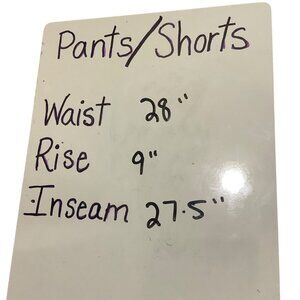 Pants/Shorts
Waist 28"
Rise 9"
Inseam 27.5"